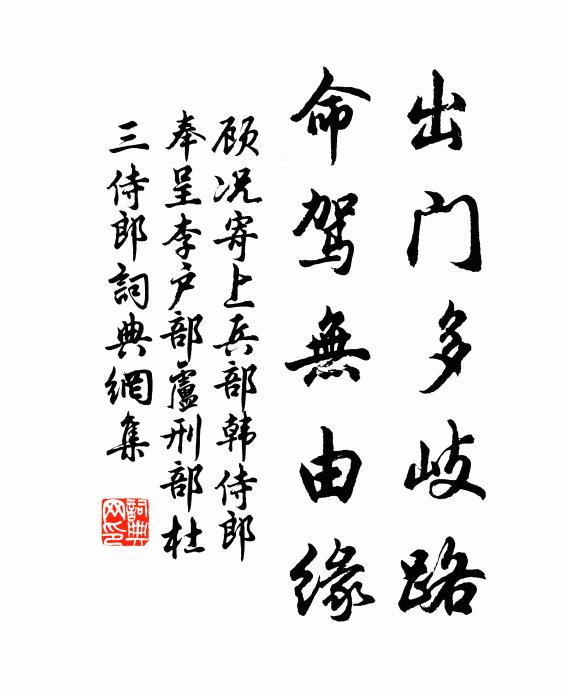 出门多歧路
命驾無由缘
顾况寄上兵部韩侍郎
奉呈李户部盧刑部杜
三侍郎詞典網集
詞典
网印